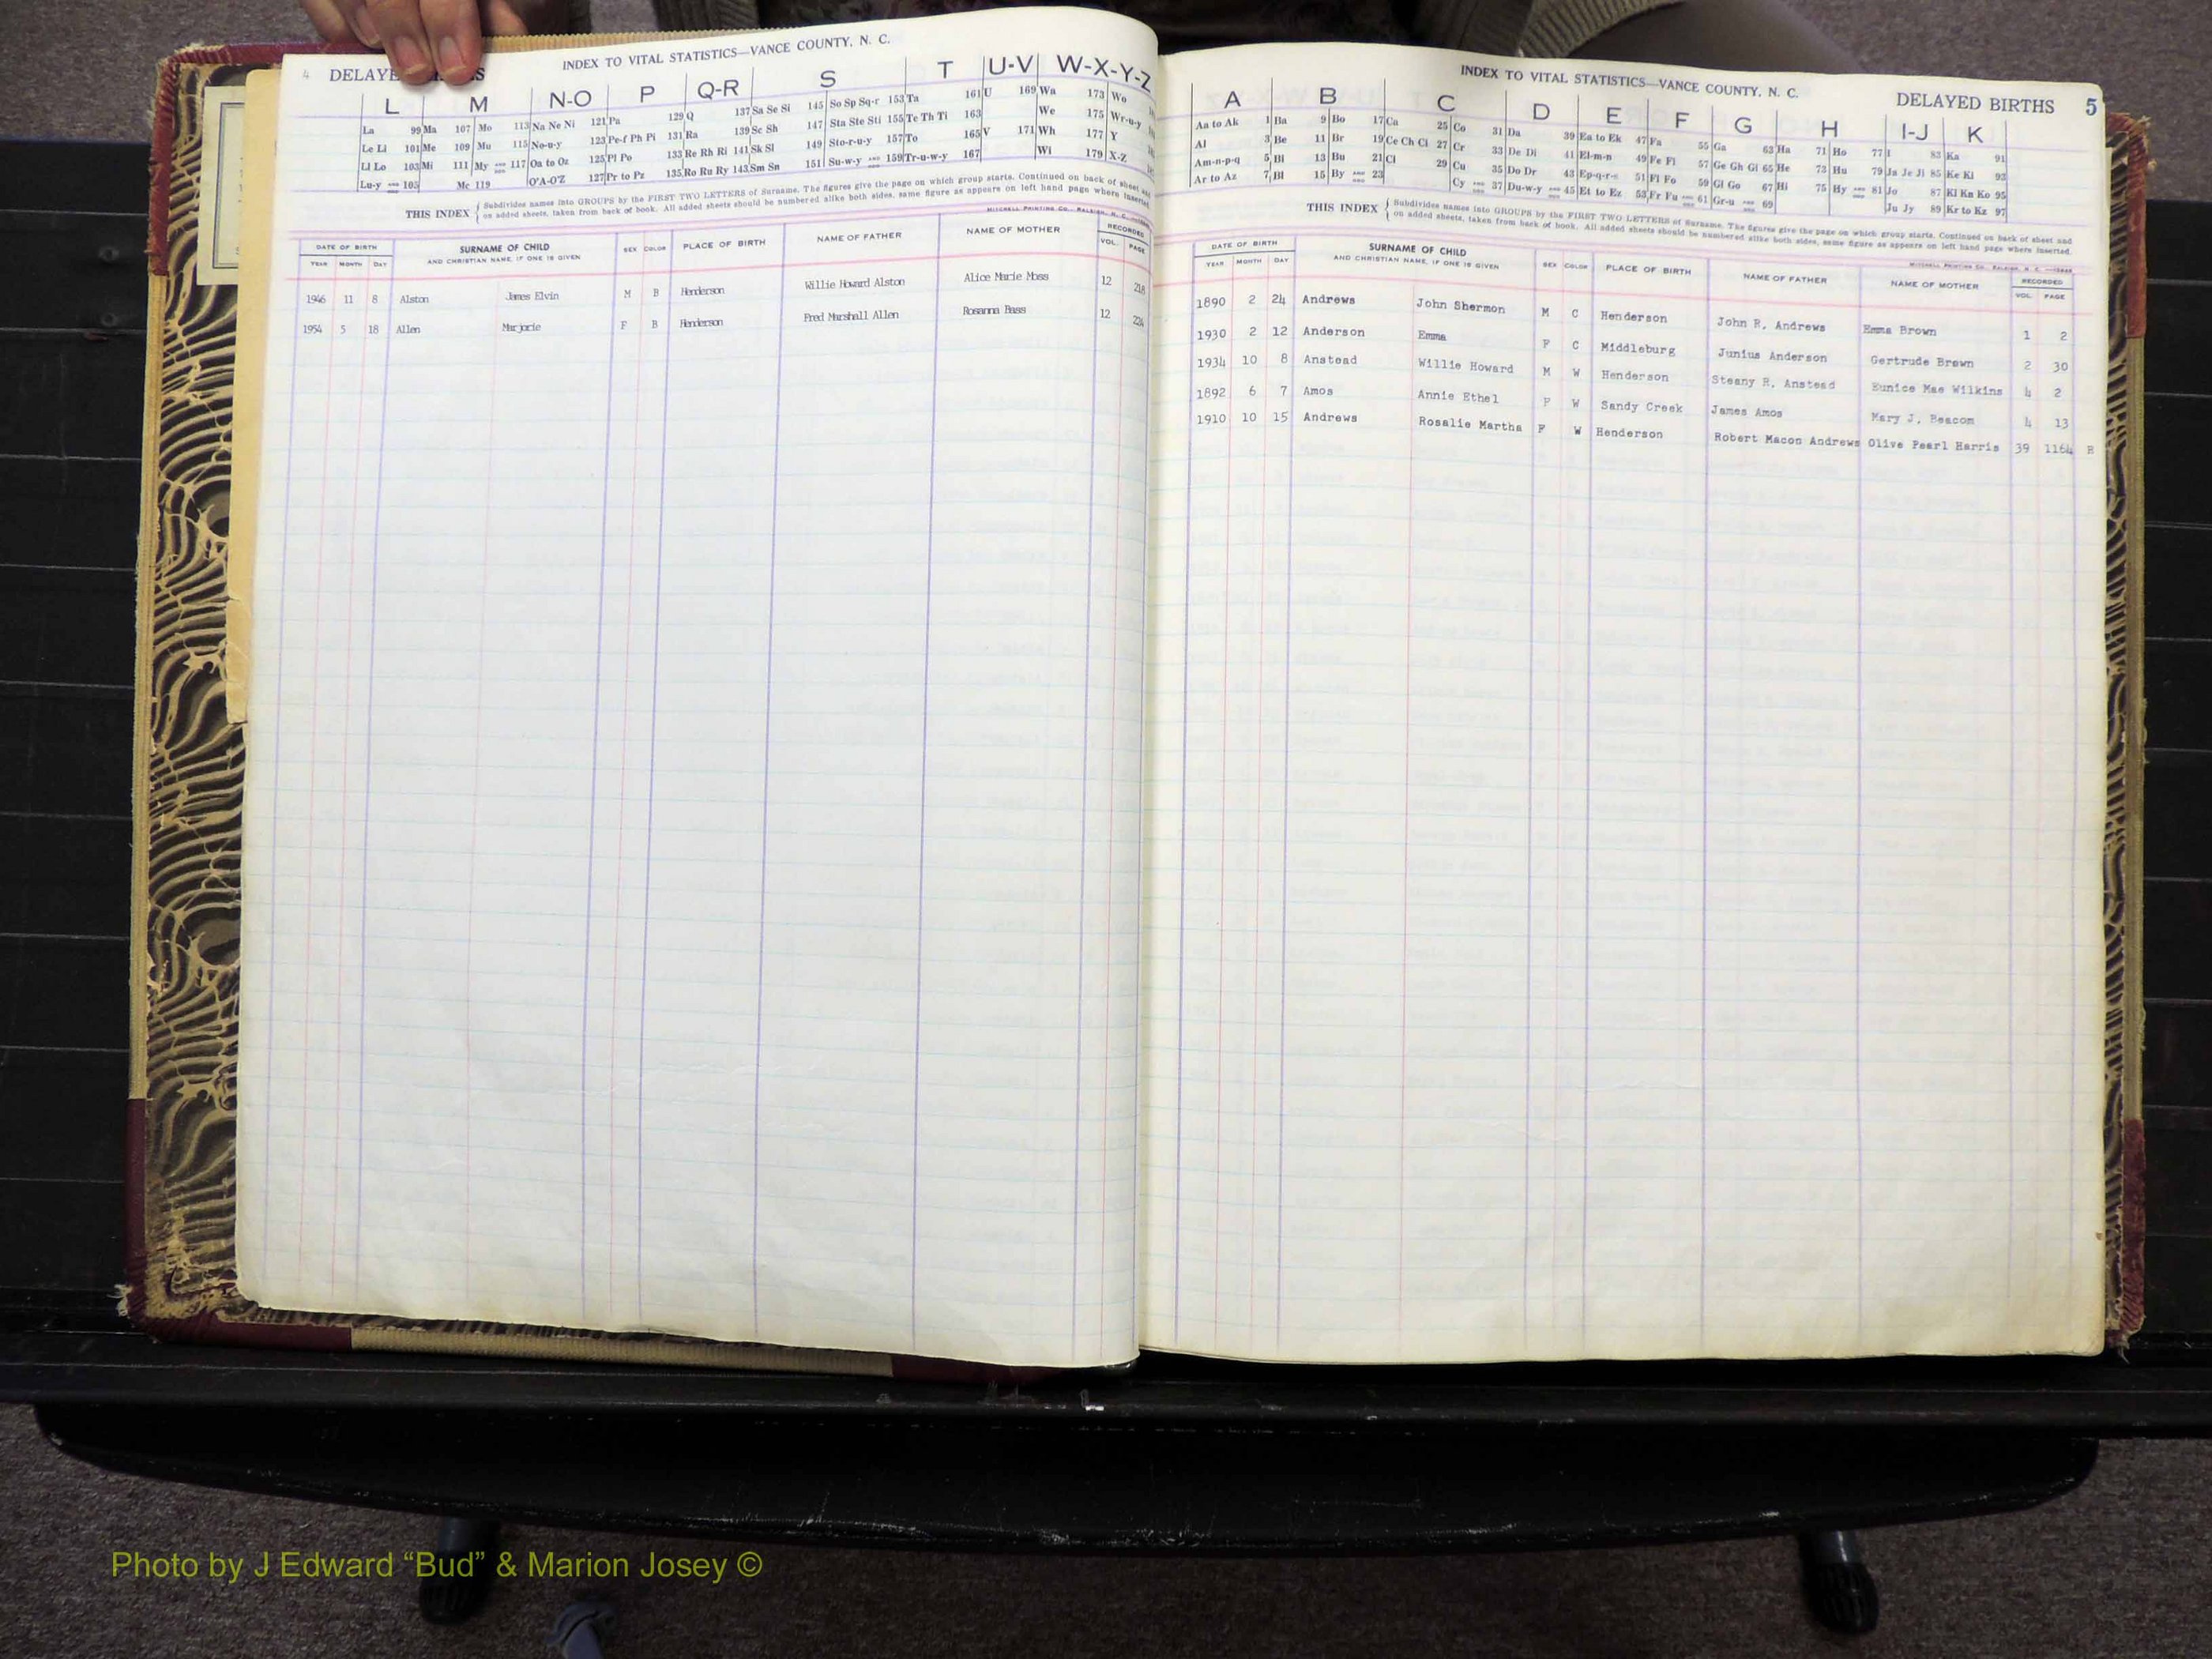 4 DELAYE
INDEX TO VITAL STATISTICS—VANCE COUNTY, N. C.
L M N-O P Q-R S T U-V W-X-Y-Z
La 99 Ma 107 Mo 113 Na Ne Ni 121 Pa 129 Q 137 Sa Se Si 145 So Sp Sq-r 153 Ta 161 U 169 Wa 173 Wo
Le Li 101 Me 109 Mu 115 No-u-y 123 Pe-f Ph Pi 131 Ra 139 Sc Sh 147 Sta Ste Sti 155 Te Th Ti 163 We 175 Wr-u-y
Ll Lo 103 Mi 111 My AND ODD 117 Oa to Oz 125 Pl Po 133 Re Rh Ri 141 Sk Sl 149 Sto-r-u-y 157 To 165 V 171 Wh 177 Y
Lu-y AND ODD 105 Mc 119 O'A-O'Z 127 Pr to Pz 135 Ro Ru Ry 143 Sm Sn 151 Su-w-y AND ODD 159 Tr-u-w-y 167 Wi 179 X-Z
THIS INDEX { Subdivides names into GROUPS by the FIRST TWO LETTERS of Surname. The figures give the page on which group starts. Continued on back of sheet and
on added sheets, taken from back of book. All added sheets should be numbered alike both sides, same figure as appears on left hand page where inserted.
MITCHELL PRINTING CO., RALEIGH, N. C.
DATE OF BIRTH SURNAME OF CHILD SEX COLOR PLACE OF BIRTH NAME OF FATHER NAME OF MOTHER RECORDED
YEAR MONTH DAY AND CHRISTIAN NAME, IF ONE IS GIVEN VOL. PAGE
1946 11 8 Alston James Elvin M B Henderson Willie Howard Alston Alice Marie Moss 12 218
1954 5 18 Allen Marjorie F B Henderson Fred Marshall Allen Rosanna Bass 12 224
INDEX TO VITAL STATISTICS—VANCE COUNTY, N. C.
DELAYED BIRTHS 5
A B C D E F G H I-J K
Aa to Ak 1 Ba 9 Bo 17 Ca 25 Co 31 Da 39 Ea to Ek 47 Fa 55 Ga 63 Ha 71 Ho 77 I 83 Ka 91
Al 3 Be 11 Br 19 Ce Ch Ci 27 Cr 33 De Di 41 El-m-n 49 Fe Fi 57 Ge Gh Gi 65 He 73 Hu 79 Ja Je Ji 85 Ke Ki 93
Am-n-p-q 5 Bi 13 Bu 21 Cl 29 Cu 35 Do Dr 43 Ep-q-r-s 51 Fl Fo 59 Gl Go 67 Hi 75 Hy AND ODD 81 Jo 87 Kl Kn Ko 95
Ar to Az 7 Bl 15 By AND ODD 23 Cy AND ODD 37 Du-w-y AND ODD 45 Et to Ez 53 Fr Fu AND ODD 61 Gr-u AND ODD 69 Ju Jy 89 Kr to Kz 97
THIS INDEX { Subdivides names into GROUPS by the FIRST TWO LETTERS of Surname. The figures give the page on which group starts. Continued on back of sheet and
on added sheets, taken from back of book. All added sheets should be numbered alike both sides, same figure as appears on left hand page where inserted.
MITCHELL PRINTING CO. RALEIGH, N. C.
DATE OF BIRTH SURNAME OF CHILD SEX COLOR PLACE OF BIRTH NAME OF FATHER NAME OF MOTHER RECORDED
YEAR MONTH DAY AND CHRISTIAN NAME, IF ONE IS GIVEN VOL. PAGE
1890 2 24 Andrews John Shermon M C Henderson John R. Andrews Emma Brown 1 2
1930 2 12 Anderson Emma F C Middleburg Junius Anderson Gertrude Brown 2 30
1934 10 8 Anstead Willie Howard M W Henderson Steany R. Anstead Eunice Mae Wilkins 4 2
1892 6 7 Amos Annie Ethel F W Sandy Creek James Amos Mary J. Beacom 4 13
1910 10 15 Andrews Rosalie Martha F W Henderson Robert Macon Andrews Olive Pearl Harris 39 1164 B
Photo by J Edward “Bud” & Marion Josey ©